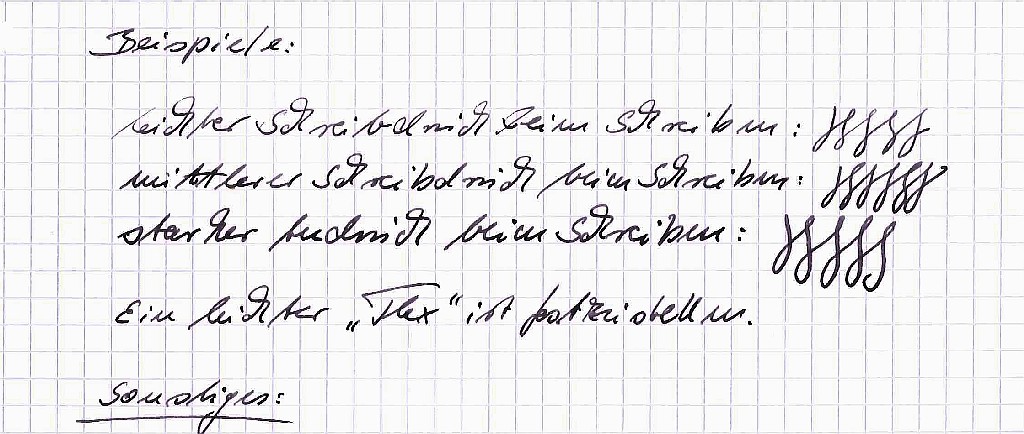 Beispiele:
leichter Schreibdruck beim Schreiben:
mittlerer Schreibdruck beim Schreiben:
starker druck beim Schreiben:
Ein leichter „Flex“ ist festzustellen.
Sonstiges: